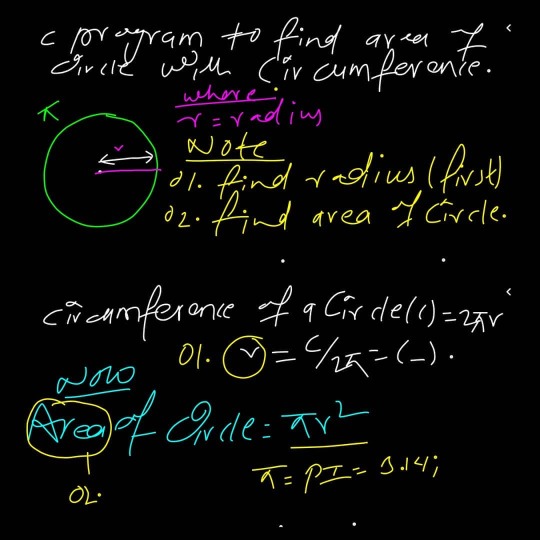 c program to find area of
Circle with Circumference.
where
r = radius
r
Note
01. find radius (first)
02. find area of Circle.
Circumference of a Circle(c) = 2πr
01. r = c/2π = (-).
Now
Area of Circle = πr²
π = PI = 3.14;
02.